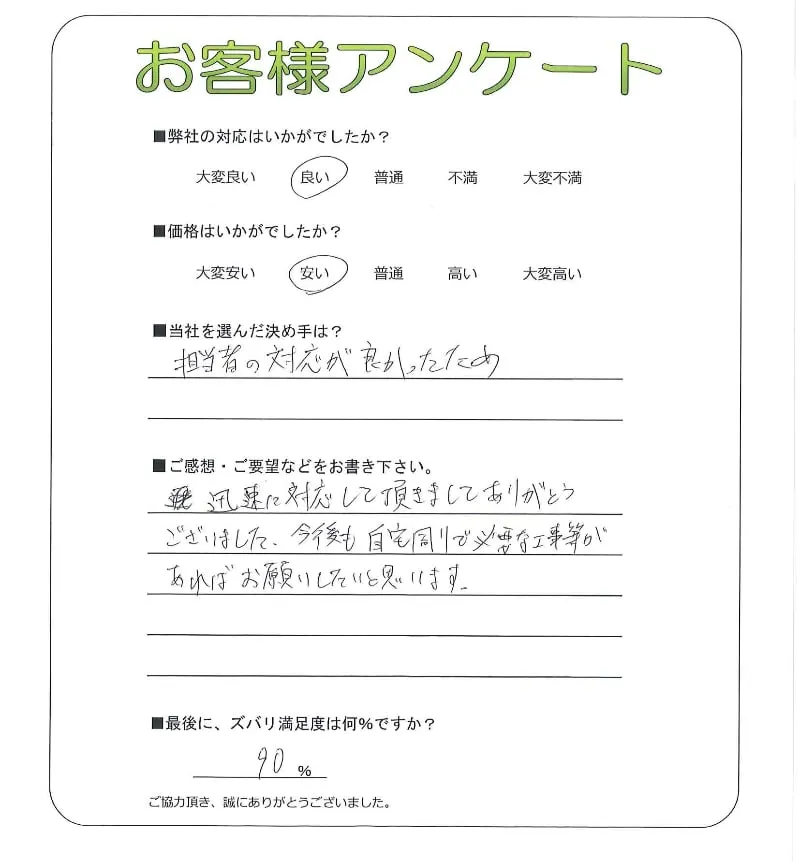 お客様アンケート
■弊社の対応はいかがでしたか？
大変良い 良い 普通 不満 大変不満
■価格はいかがでしたか？
大変安い 安い 普通 高い 大変高い
■当社を選んだ決め手は？
担当者の対応が良かったため
■ご感想・ご要望などをお書き下さい。
迅速に対応して頂きましてありがとう
ございました、今後も自宅周りで必要な工事等が
あればお願いしたいと思います。
■最後に、ズバリ満足度は何%ですか？
90 %
ご協力頂き、誠にありがとうございました。